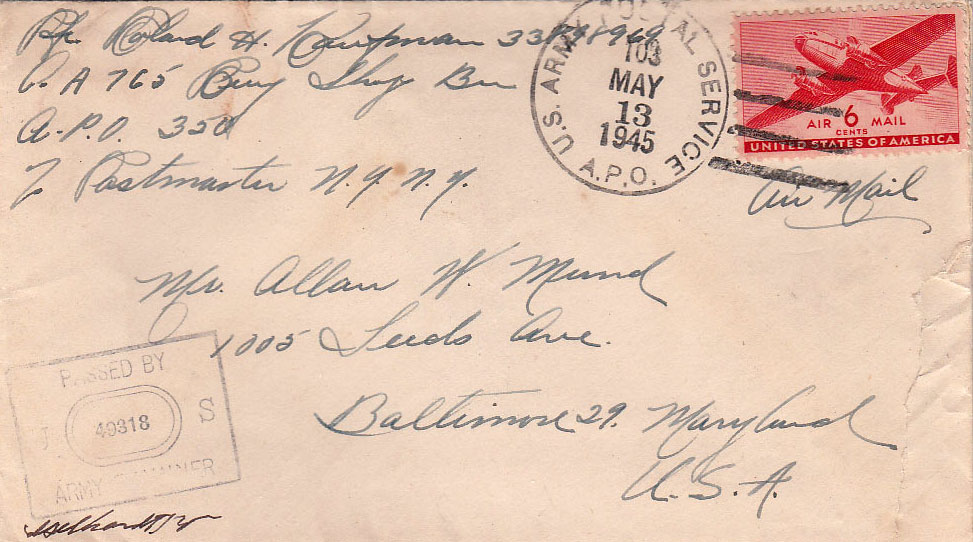 Pfc. Roland H. Kaufman
Co. A 765 Rwy Shop Bn
A.P.O. 350
% Postmaster N.Y. N.Y.
U.S. ARMY POSTAL SERVICE
103
MAY
13
1945
A.P.O.
AIR 6 MAIL
CENTS
UNITED STATES OF AMERICA
Air Mail
Mr. Allan W. Mund
1005 Leeds Ave.
Baltimore 29, Maryland
U.S.A.
PASSED BY
U 49318 S
ARMY EXAMINER